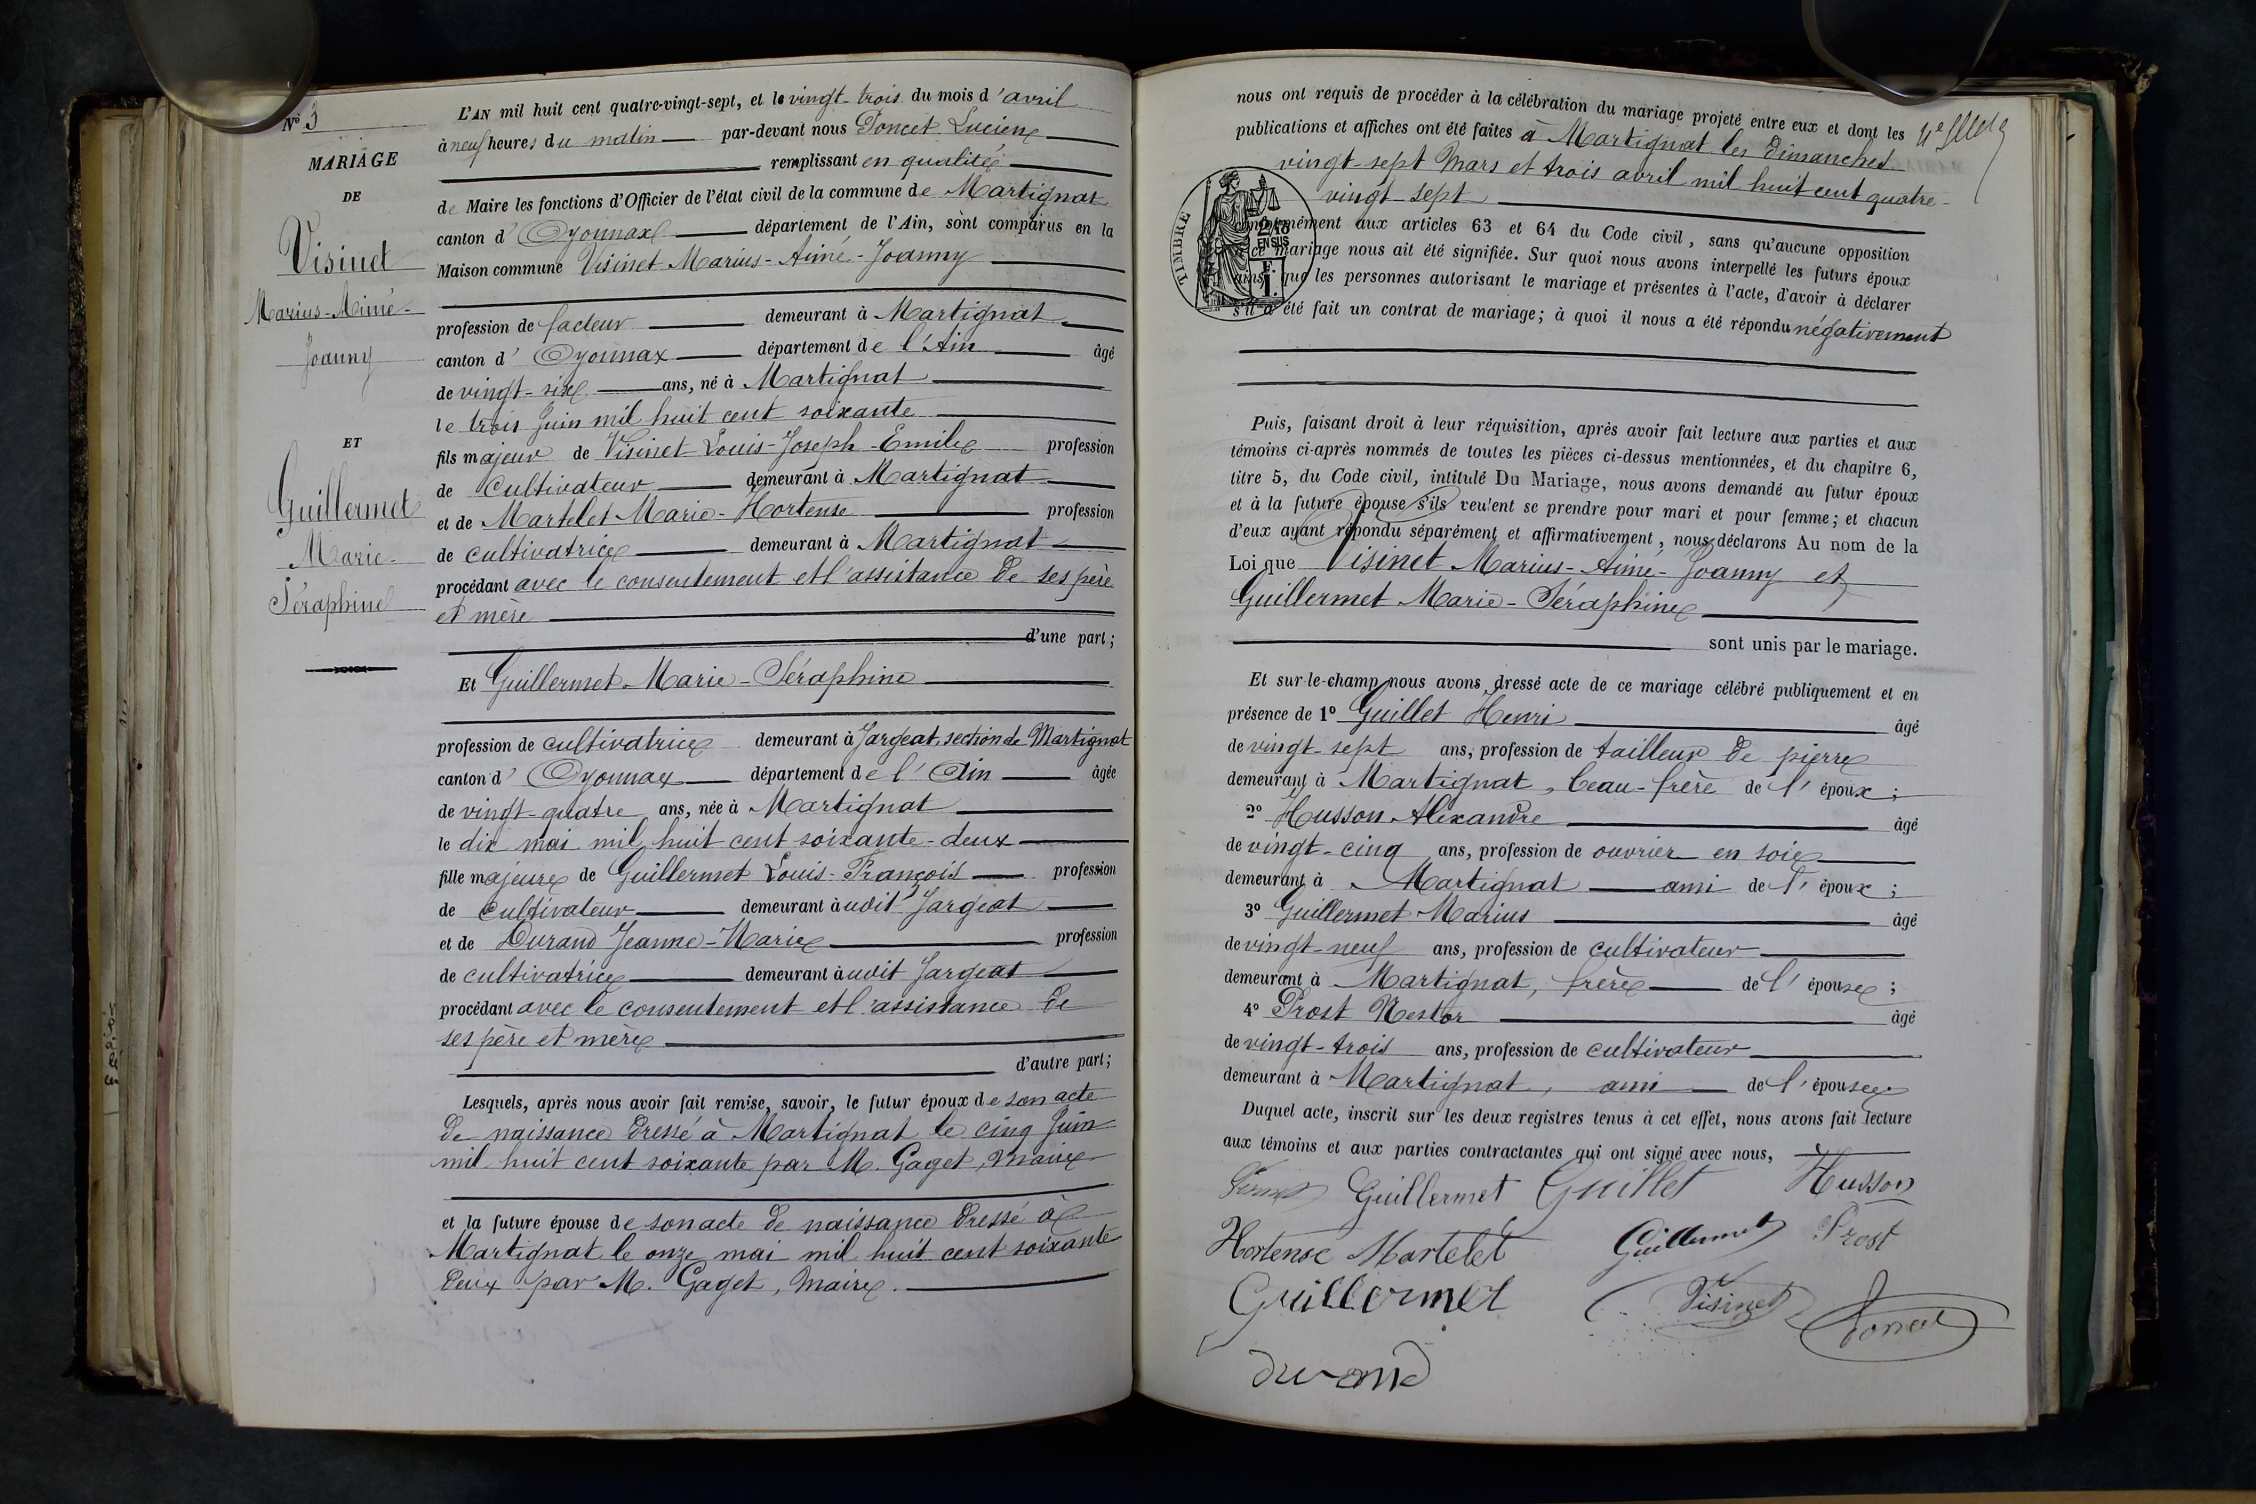 N° 3
MARIAGE
DE
Visinet
Marius-Aimé-
Joanny
ET
Guillermet
Marie-
Séraphine
L'AN mil huit cent quatre-vingt-sept, et le vingt-trois du mois d'avril
à neuf heures du matin par-devant nous Poncet Lucien
remplissant en qualité
de Maire les fonctions d'Officier de l'état civil de la commune de Martignat
canton d'Oyonnax département de l'Ain, sont comparus en la
Maison commune Visinet Marius-Aimé-Joanny
profession de facteur demeurant à Martignat
canton d'Oyonnax département de l'Ain âgé
de vingt-six ans, né à Martignat
le trois Juin mil huit cent soixante
fils majeur de Visinet Louis-Joseph-Emile profession
de cultivateur demeurant à Martignat
et de Martelet Marie-Hortense profession
de cultivatrice demeurant à Martignat
procédant avec le consentement et l'assistance de ses père
et mère
d'une part;
Et Guillermet Marie-Séraphine
profession de cultivatrice demeurant à Jargeat, section de Martignat
canton d'Oyonnax département de l'Ain âgée
de vingt-quatre ans, née à Martignat
le dix mai mil huit cent soixante-deux
fille majeure de Guillermet Louis-François profession
de cultivateur demeurant à udit Jargeat
et de Durand Jeanne-Marie profession
de cultivatrice demeurant à udit Jargeat
procédant avec le consentement et l'assistance de
ses père et mère
d'autre part;
Lesquels, après nous avoir fait remise, savoir, le futur époux de son acte
de naissance dressé à Martignat le cinq Juin
mil huit cent soixante par M. Gaget, maire
et la future épouse de son acte de naissance dressé à
Martignat le onze mai mil huit cent soixante
deux par M. Gaget, maire.
nous ont requis de procéder à la célébration du mariage projeté entre eux et dont les
publications et affiches ont été faites à Martignat les dimanches
vingt-sept Mars et trois avril mil huit cent quatre-
vingt-sept
TIMBRE
2/10
EN SUS
conformément aux articles 63 et 64 du Code civil, sans qu'aucune opposition
à ce mariage nous ait été signifiée. Sur quoi nous avons interpellé les futurs époux
ainsi que les personnes autorisant le mariage et présentes à l'acte, d'avoir à déclarer
s'il a été fait un contrat de mariage; à quoi il nous a été répondu négativement
Puis, faisant droit à leur réquisition, après avoir fait lecture aux parties et aux
témoins ci-après nommés de toutes les pièces ci-dessus mentionnées, et du chapitre 6,
titre 5, du Code civil, intitulé Du Mariage, nous avons demandé au futur époux
et à la future épouse s'ils veulent se prendre pour mari et pour femme; et chacun
d'eux ayant répondu séparément et affirmativement, nous déclarons Au nom de la
Loi que Visinet Marius-Aimé-Joanny et
Guillermet Marie-Séraphine
sont unis par le mariage.
Et sur-le-champ nous avons dressé acte de ce mariage célébré publiquement et en
présence de 1° Guillet Henri âgé
de vingt-sept ans, profession de tailleur de pierre
demeurant à Martignat, beau-frère de l'époux;
2° Husson Alexandre âgé
de vingt-cinq ans, profession de ouvrier en soie
demeurant à Martignat ami de l'époux;
3° Guillermet Marius âgé
de vingt-neuf ans, profession de cultivateur
demeurant à Martignat, frère de l'épouse;
4° Prost Nestor âgé
de vingt-trois ans, profession de cultivateur
demeurant à Martignat, ami de l'épouse
Duquel acte, inscrit sur les deux registres tenus à cet effet, nous avons fait lecture
aux témoins et aux parties contractantes qui ont signé avec nous,
Guillermet Guillet Husson
Hortense Martelet Guillermet Prost
Guillermet Visinet Poncet
durand